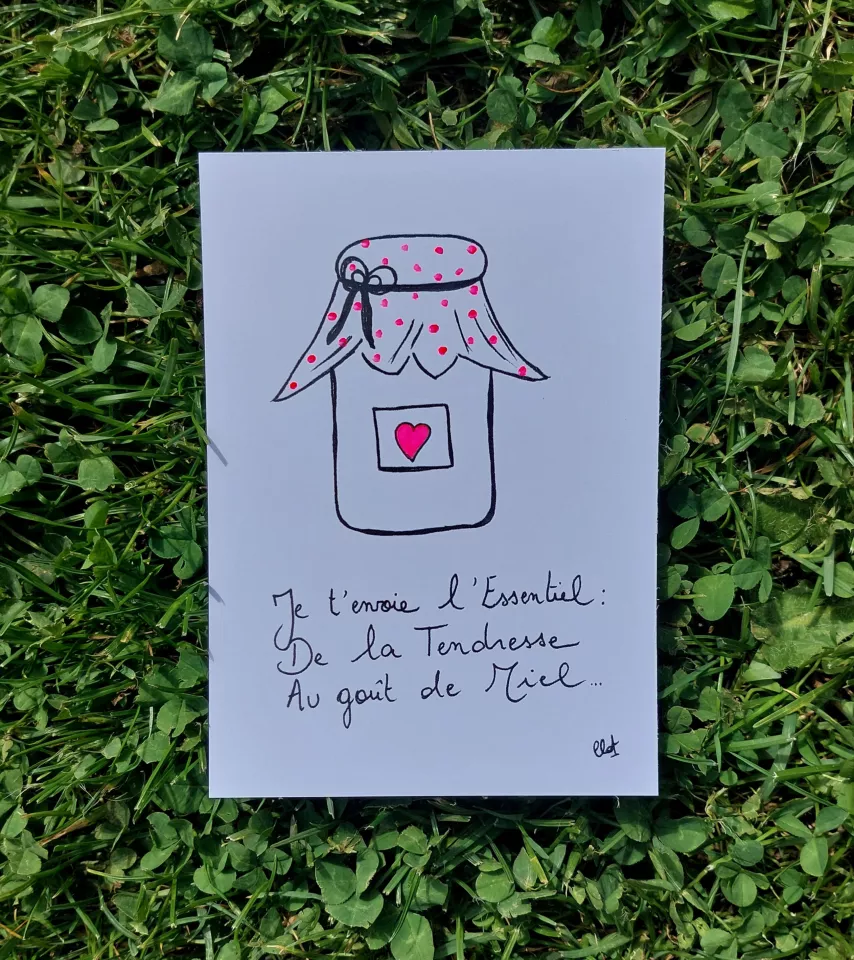 Je t'envoie l'Essentiel :
De la Tendresse
Au goût de Miel...